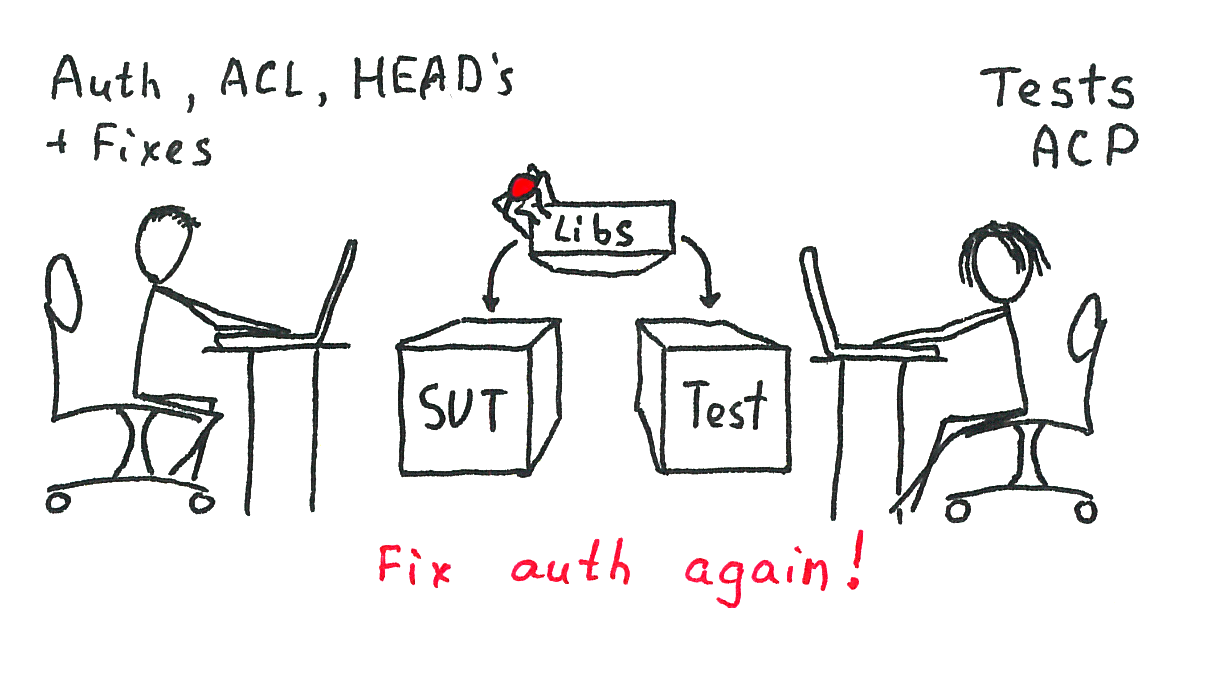 Auth, ACL, HEAD's
+ Fixes
Tests
ACP
Libs
SUT
Test
Fix auth again!